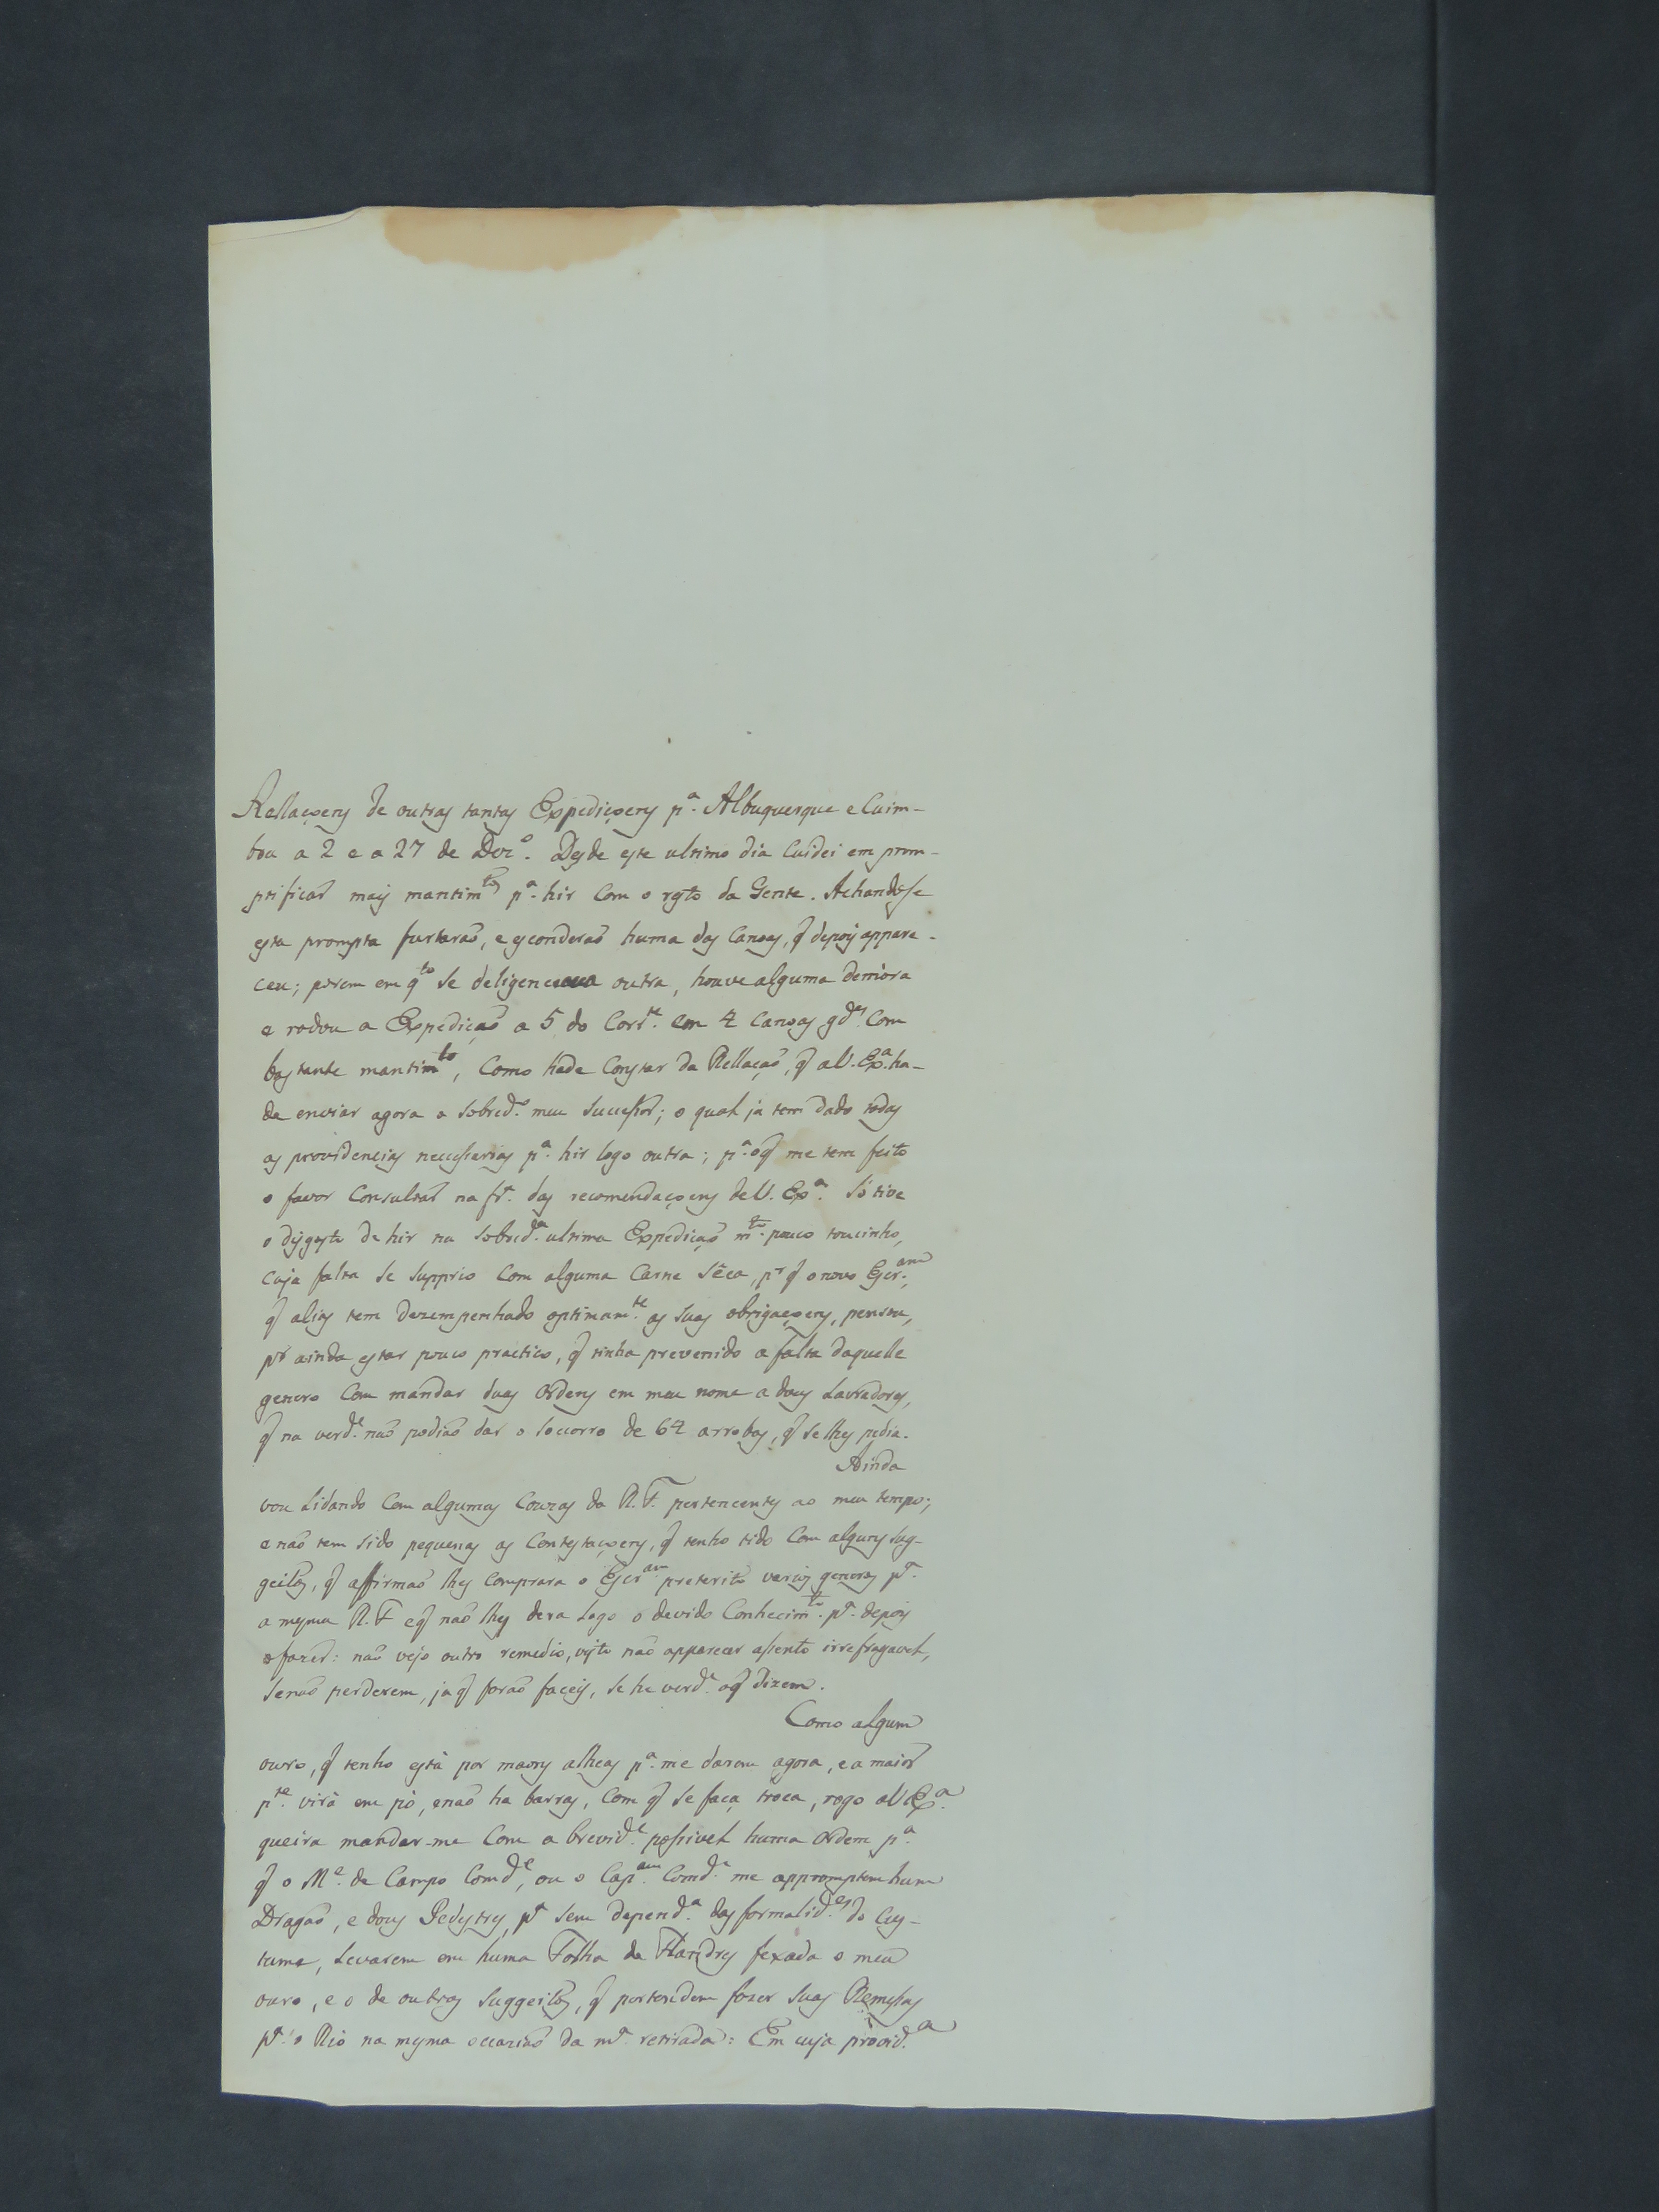 Rellaçoens de outras tantas Expediçoens pª. Albuquerque e Cuim-
bou a 2 e a 27 de Dezº. Desde este ultimo dia Cuidei em prom-
ptificar mais mantimtos pª. hir Com o rsto da Gente. Achandose
esta prompta furtaraõ, e esconderaõ huma das Canoas, q̃ depois appare-
ceu; porem em qto se deligenceava outra, houve alguma demóra
e rodou a Expediçaõ a 5 do Corrte. em 4 Canoas gdes. Com
bastante mantimto, Como hade Constar da Rellaçaõ, q̃ a V. Exª. ha-
de enviar agora o sobredº. meu sucessor; o qual ja tem dado todas
as providencias necessarias pª. hir logo outra; pª. oq̃ me tem feito
o favor Consultar na fr̃. das recomendaçoens de V. Exª. Só tive
o disgosto de hir na sobredª. ultima Expediçaõ mto. pouco toucinho,
cuja falta se supprio Com alguma Carne sêca, pr q̃ o novo Escram.,
q̃ alias tem dezempenhado optimamte. as suas obrigaçoens, pensou,
pr ainda estar pouco practico, q̃ tinha prevenido a falta daquelle
genero Com mandar duas Ordens em meu nome a dous Lavradores,
q̃ na verde. naõ podiaõ dar o Socorro de 64 arrobas, q̃ se lhes pedia.
Ainda
vou Lidando Com algumas Couzas da R. F. pertencentes ao meu tempo;
e naõ tem sido pequenas as Contestaçoens, q̃ tenho tido Com alguns sug-
geitos, q̃ affirmaõ lhes Comprara o Escram. preterito varios generos pª.
a mesma R. F. e q̃ naõ lhes dera Logo o devido Conhecimto. pª. depois
o fazer: naõ vejo outro remedio, visto naõ apparecer assento irrefragavel,
senaõ perderem, ja q̃ foraõ faceis, se he verde. oq̃ dizem.
Como algum
ouro, q̃ tenho está por maons alheas pª. me darem agora, e a maior
pte. virá em pó, e naõ ha barras, Com q̃ se faça troca, rogo a V. Exª.
queira mandar-me Com a brevide. possivel huma Ordem pª.
q̃ o Me. de Campo Comde, ou o Capam. Comde. me appromptem hum
Dragaõ, e dous Pedestres, pª sem dependª. das formalides. do Cus-
tume, Levarem em huma Folha de Flandres fexada o meu
ouro, e o de outros suggeitos, q̃ pertendem fazer suas Remessas
pª. o Rio na mesma occaziaõ da mª. retirada: Em cuja providª.